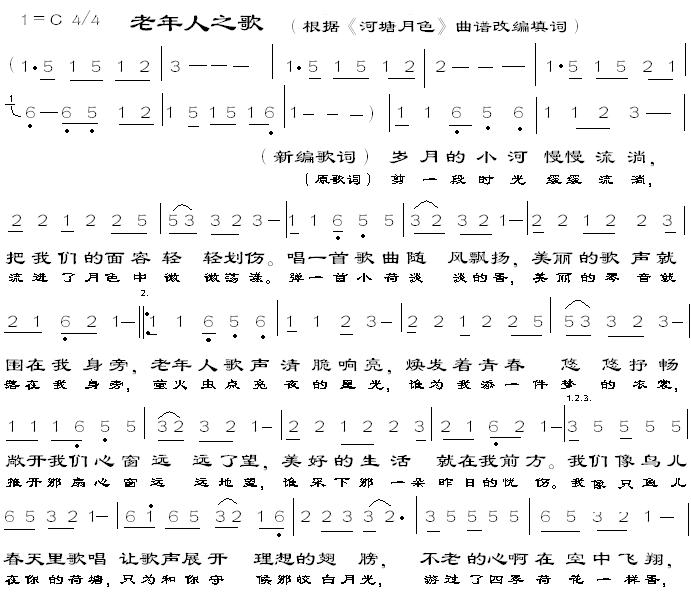 1=C 4/4 老年人之歌 （根据《河塘月色》曲谱改编填词）
（1·5 1 5 1 2 3 — — — 1·5 1 5 1 2 2 — — — 1·5 1 5 2 1
1 6 — 6 5 1 2 1 5 1 5 1 6 1 — — —） 1 1 6 5 6 1 1 2 3 —
（新编歌词）岁月的小河 慢慢流淌，
（原歌词）剪一段时光 缓缓流淌，
2 2 1 2 2 5 5 3 3 2 3 — 1 1 6 5 5 3 2 3 2 1 — 2 2 1 2 2 3
把我们的面容轻 轻划伤。唱一首歌曲随 风飘扬，美丽的歌声就
流进了月色中微 微荡漾。弹一首小荷淡 淡的香，美丽的琴音就
2 1 6 2 1 — 2. 1 1 6 5 6 1 1 2 3 — 2 2 1 2 2 5 5 3 3 2 3 —
围在我身旁，老年人歌声清脆响亮，焕发着青春 悠悠抒畅
落在我身旁，萤火虫点亮夜的星光，谁为我添一件梦的衣裳，
1.2.3.
1 1 1 1 6 5 5 3 2 3 2 1 — 2 2 1 2 2 3 2 1 6 2 1 — 3 5 5 5 5 5
敞开我们心窗远 远了望，美好的生活 就在我前方。我们像鸟儿
推开那扇心窗远 远地望，谁采下那一朵昨日的忧伤。我像只鱼儿
6 5 3 2 1 — 6 1 6 5 3 2 1 6 2 2 3 2 3 2· 3 5 5 5 5 5 6 5 3 2 1 —
春天里歌唱 让歌声展开 理想的翅膀， 不老的心啊在空中飞翔，
在你的荷塘，只为和你守 候那皎白月光， 游过了四季荷花一样香，